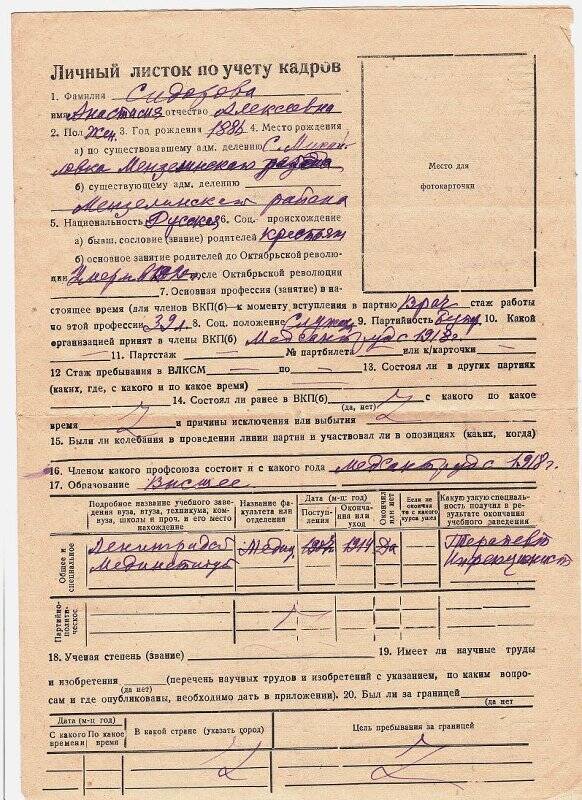 Личный листок по учету кадров
1. Фамилия Сидорова
имя Анастасия отчество Алексеевна
2. Пол Жен. 3. Год рождения 4. Место рождения
а) по существовавшему адм. делению С. Михай-
ловка Мензелинского района
б) существующему адм. делению
Мензелинского района
5. Национальность Русская 6. Соц. происхождение
а) бывш. сословие (звание) родителей крестьян
б) основное занятие родителей до Октябрьской револю-
ции Умерли после Октябрьской революции
7. Основная профессия (занятие) в на-
стоящее время (для членов ВКП(б)—к моменту вступления в партию Врач стаж работы
по этой профессии 39 л. 8. Соц. положение Служащ 9. Партийность 10. Какой
организацией принят в члены ВКП(б) Медсантруд с 1918 г.
11. Партстаж — № партбилета — или к/карточки —
12 Стаж пребывания в ВЛКСМ — по — 13. Состоял ли в других партиях
(каких, где, с какого и по какое время) —
14. Состоял ли ранее в ВКП(б) с какого по какое
(да, нет)
время и причины исключения или выбытия
15. Были ли колебания в проведении линии партии и участвовал ли в опозициях (каких, когда)
16. Членом какого профсоюза состоит и с какого года Медсантруд с 1918 г.
17. Образование Высшее
Подробное название учебного заве-
дения вуза, втуза, техникума, ком-
вуза, школы и проч. и его место на-
хождение
Название фа-
культета или
отделения
Дата (м-ц: год)
Поступ-
ления
Оконча-
ния или
уход
Окончил
или нет
Если не
окончил
то с какого
курса ушел
Какую узкую специаль-
ность получил в
результате окончания
учебного заведения
Общее и
специальное
Ленинградский
Мединститут
Медиц 1914 Да
Терапевт
Инфекционист
Партийно-
полити-
ческое
18. Ученая степень (звание) 19. Имеет ли научные труды
и изобретения (перечень научных трудов и изобретений с указанием, по каким вопро-
(да нет)
сам и где опубликованы, необходимо дать в приложении). 20. Был ли за границей
(да нет
Дата (м-ц год)
С какого
времени
По какое
время
В какой стране (указать город)
Цель пребывания за границей
Место для
фотокарточки